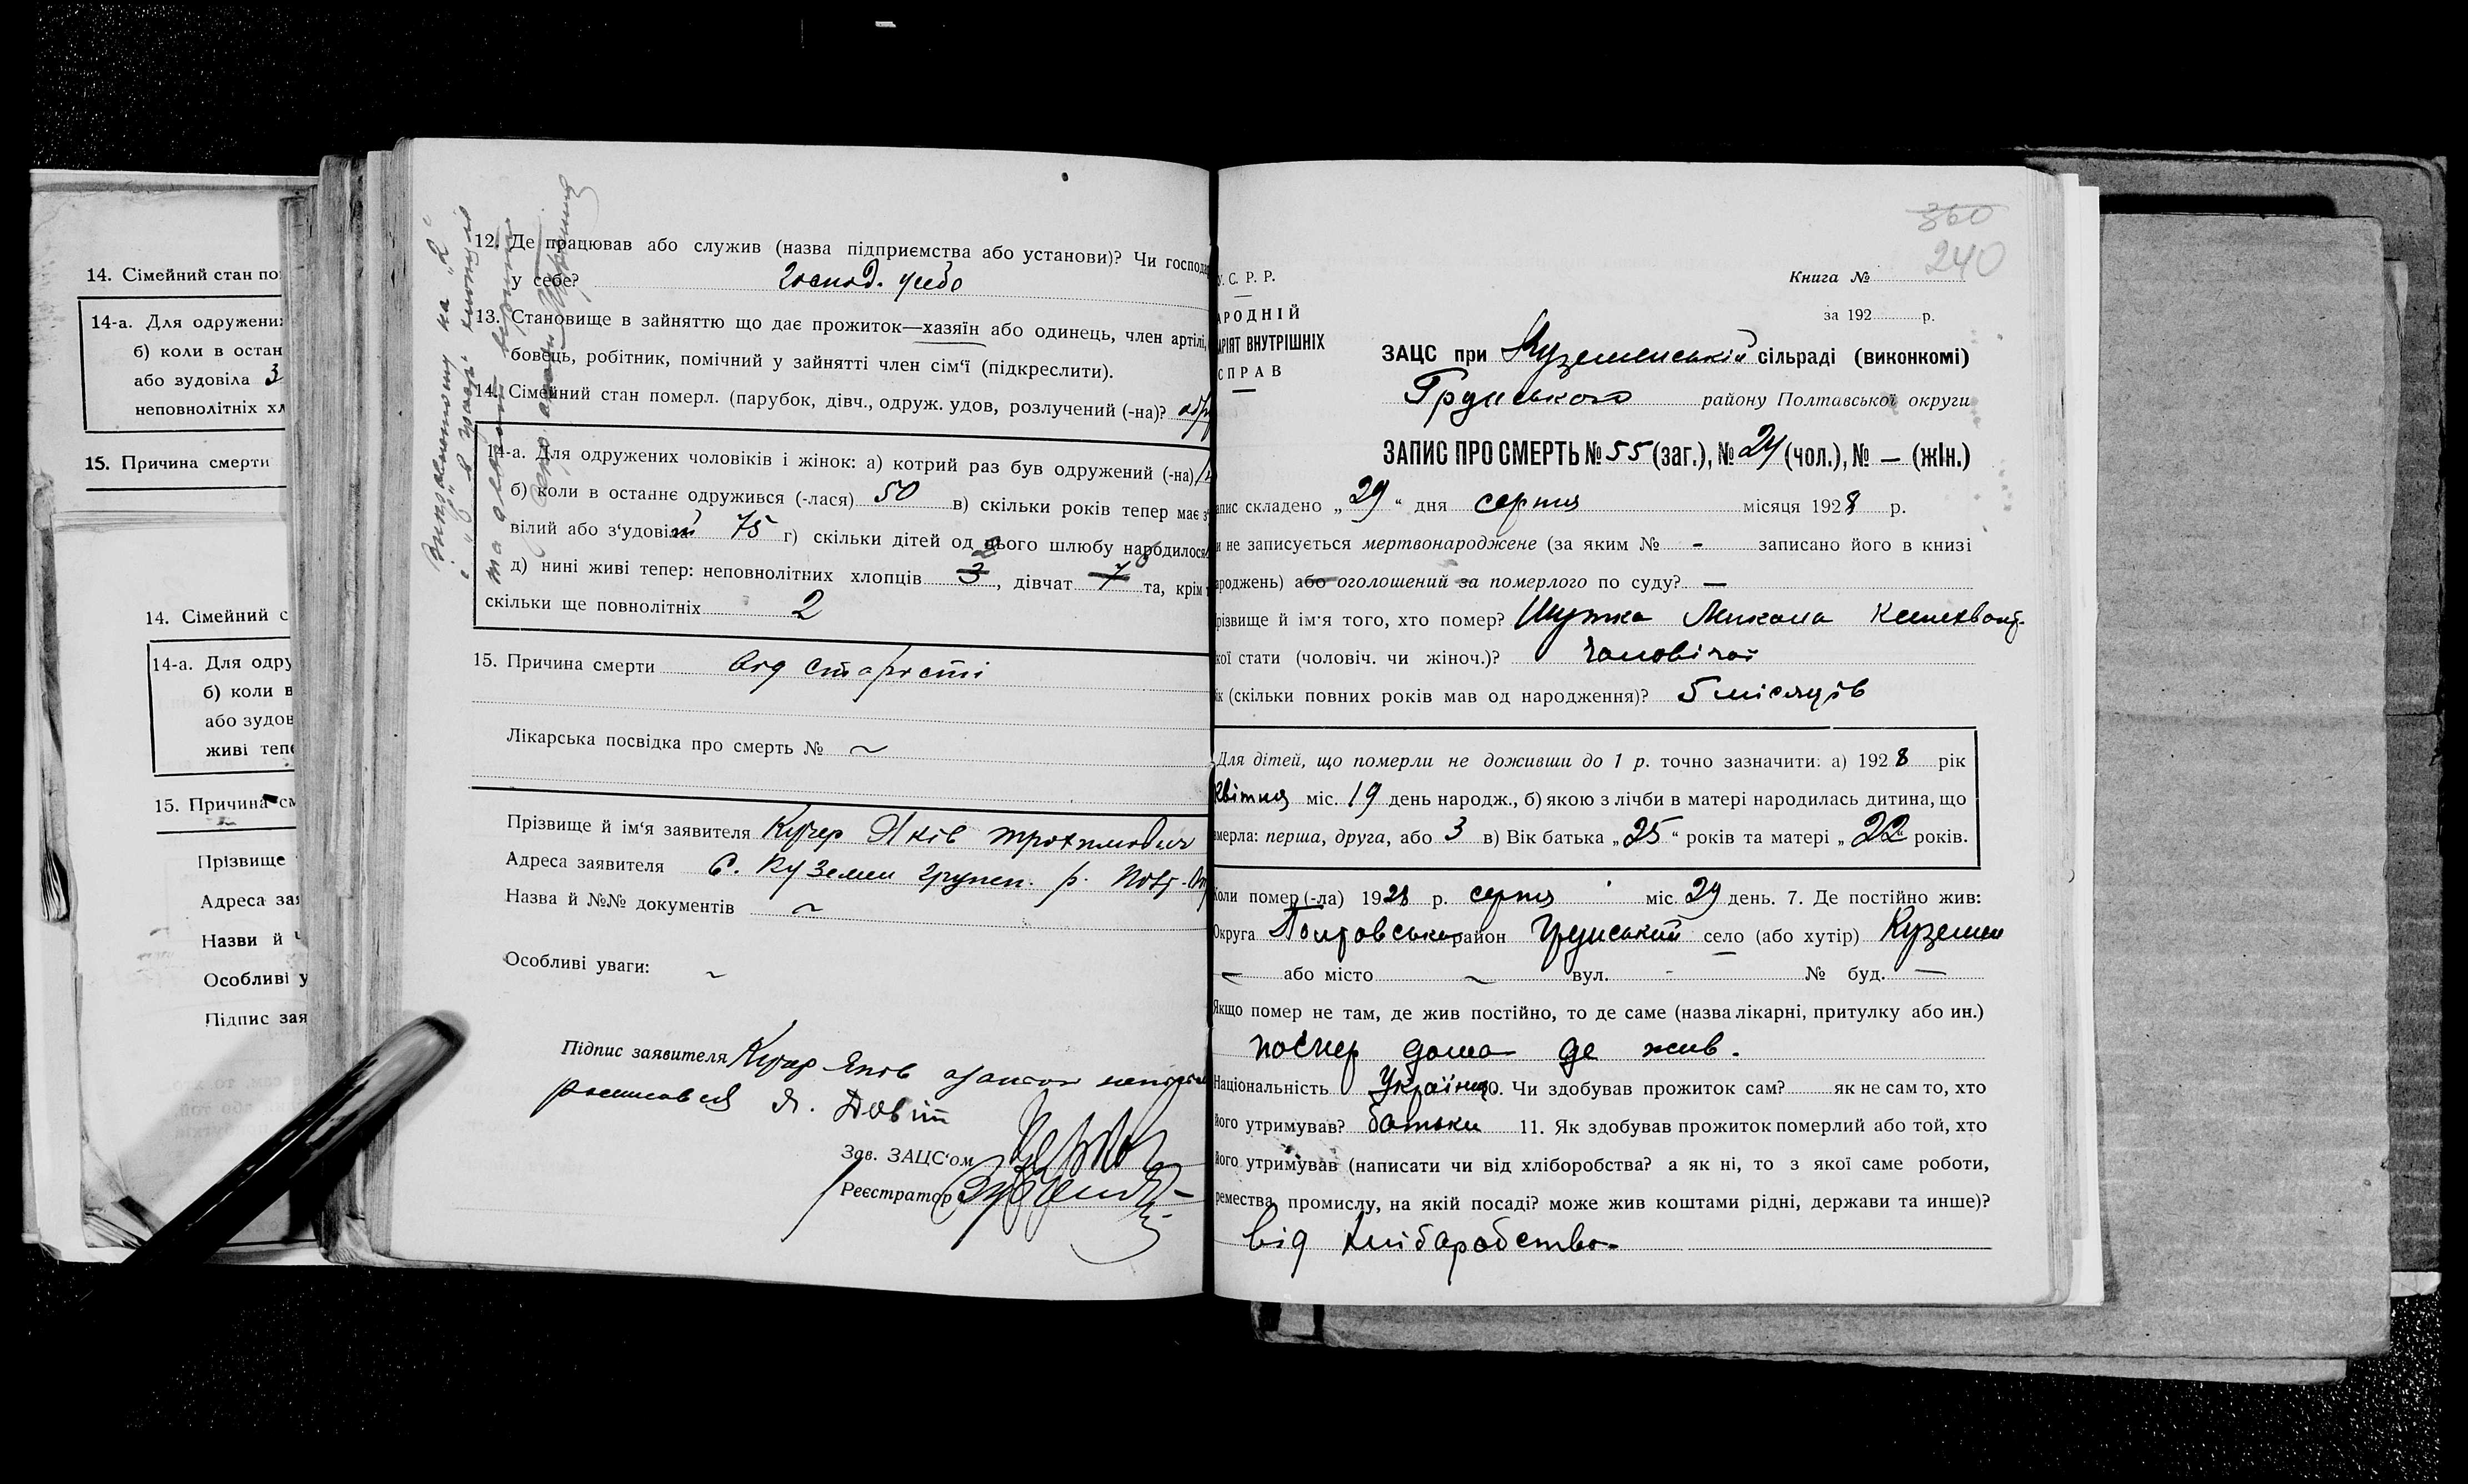 14. Сімейний стан по
14-а. Для одружени
б) коли в остан
або зудовіла 3
неповнолітніх хл
15. Причина смерти
14. Сімейний с
14-а. Для одру
б) коли в
або зудов
живі теп
15. Причина см
Прізвище
Адреса зая
Назви й
Особливі у
Підпис зая
12. Де працював або служив (назва підприємства або установи)? Чи господа
у себе? господ. у себе
13. Становище в зайняттю що дає прожиток—хазяїн або одинець, член артілі,
бовець, робітник, помічний у зайнятті член сім'ї (підкреслити).
14. Сімейний стан померл. (парубок, дівч., одруж. удов, розлучений (-на)?
14-а. Для одружених чоловіків і жінок: а) котрий раз був одружений (-на)
б) коли в останнє одружився (-лася) 50 в) скільки років тепер має
вілий або з'удовіла 75 г) скільки дітей од цього шлюбу народилося
д) нині живі тепер: неповнолітних хлопців 3, дівчат 7 та, крім
скільки ще повнолітніх 2
15. Причина смерти від старості
Лікарська посвідка про смерть № ~
Прізвище й ім'я заявителя Кучер Яків Трохимович
Адреса заявителя С. Куземен Грунсн. р. Полт-
Назва й №№ документів ~
Особливі уваги: ~
Підпис заявителя Кучер Яків
росписався Я. Довіт
Зав. ЗАЦС'ом
Реєстратор
360
240
У. С. Р. Р.
АРОДНІЙ
АРІЯТ ВНУТРІШНІХ
СПРАВ
Книга №
за 192 р.
ЗАЦС при Куземенській сільраді (виконкомі)
Грунського району Полтавської округи
ЗАПИС ПРО СМЕРТЬ № 55 (заг.), № 24 (чол.), № — (жін.)
апис складено „29“ дня серпня місяця 1928 р.
и не записується мертвонароджене (за яким № - записано його в книзі
ароджень) або оголошений за померлого по суду? —
різвище й ім'я того, хто помер? Шутка Микола
кої стати (чоловіч. чи жіноч.)? Чоловічої
ік (скільки повних років мав од народження)? 5 місяців
Для дітей, що померли не доживши до 1 р. точно зазначити: а) 1928 рік
Квітня міс. 19 день народж., б) якою з лічби в матері народилась дитина, що
мерла: перша, друга, або 3 в) Вік батька „25“ років та матері „22“ років.
Коли помер (-ла) 1928 р. серпня міс. 29 день. 7. Де постійно жив:
Округа Полтовська район Грунський село (або хутір) Куземен
— або місто ~ вул. - № буд. —
Якщо помер не там, де жив постійно, то де саме (назва лікарні, притулку або ин.)
помер дома де жив.
Національність Українець 10. Чи здобував прожиток сам? як не сам то, хто
його утримував? батьки 11. Як здобував прожиток померлий або той, хто
його утримував (написати чи від хліборобства? а як ні, то з якої саме роботи,
ремества, промислу, на якій посаді? може жив коштами рідні, держави та инше)?
від хліборобства